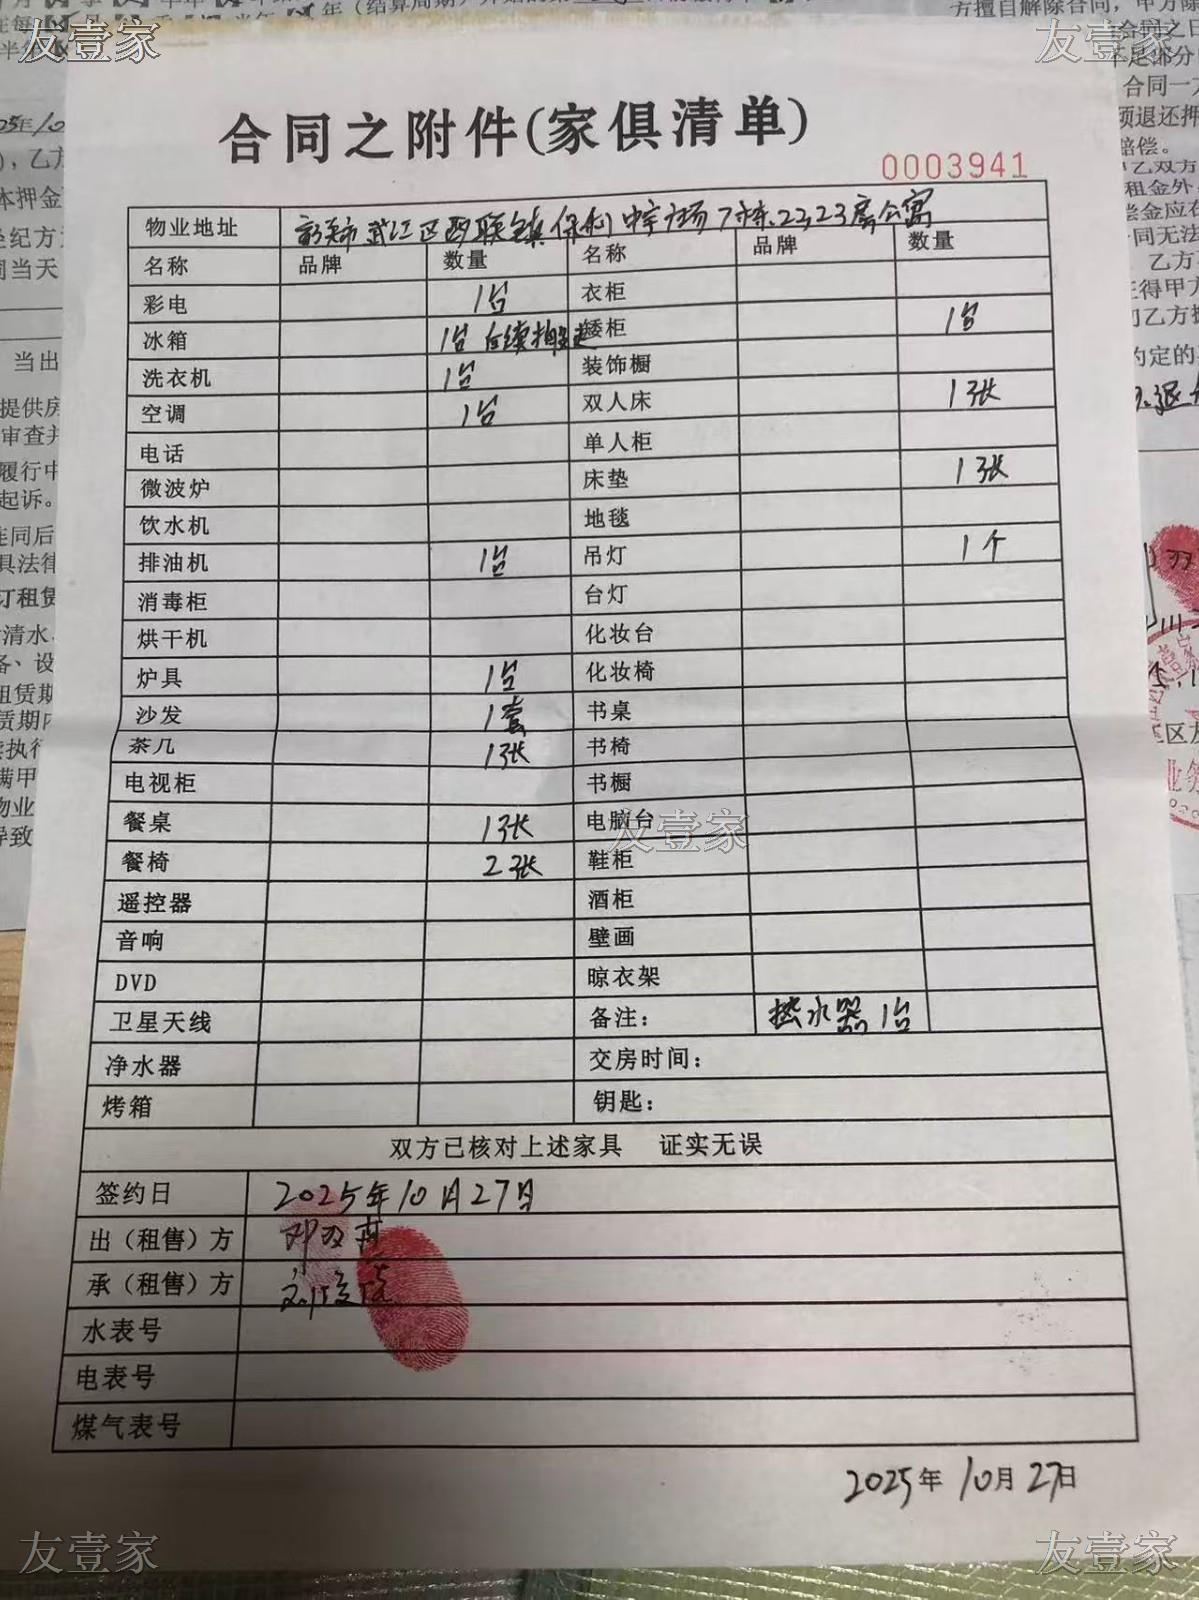 友壹家
友壹家
合同之附件(家俱清单)
0003941
物业地址 韶关市武江区西联镇保利中宇广场7栋.2223房公寓
名称 品牌 数量 名称 品牌 数量
彩电 1台 衣柜
冰箱 1台 后续 矮柜 1台
洗衣机 1台 装饰橱
空调 1台 双人床 1张
电话 单人柜
微波炉 床垫 1张
饮水机 地毯
排油机 1台 吊灯 1个
消毒柜 台灯
烘干机 化妆台
炉具 1台 化妆椅
沙发 1套 书桌
茶几 1张 书椅
电视柜 书橱
餐桌 1张 电脑台
友壹家
餐椅 2张 鞋柜
遥控器 酒柜
音响 壁画
DVD 晾衣架
卫星天线 备注: 热水器1台
净水器 交房时间:
烤箱 钥匙:
双方已核对上述家具 证实无误
签约日 2025年10月27日
出(租售)方
承(租售)方
水表号
电表号
煤气表号
2025年10月27日
友壹家
友壹家